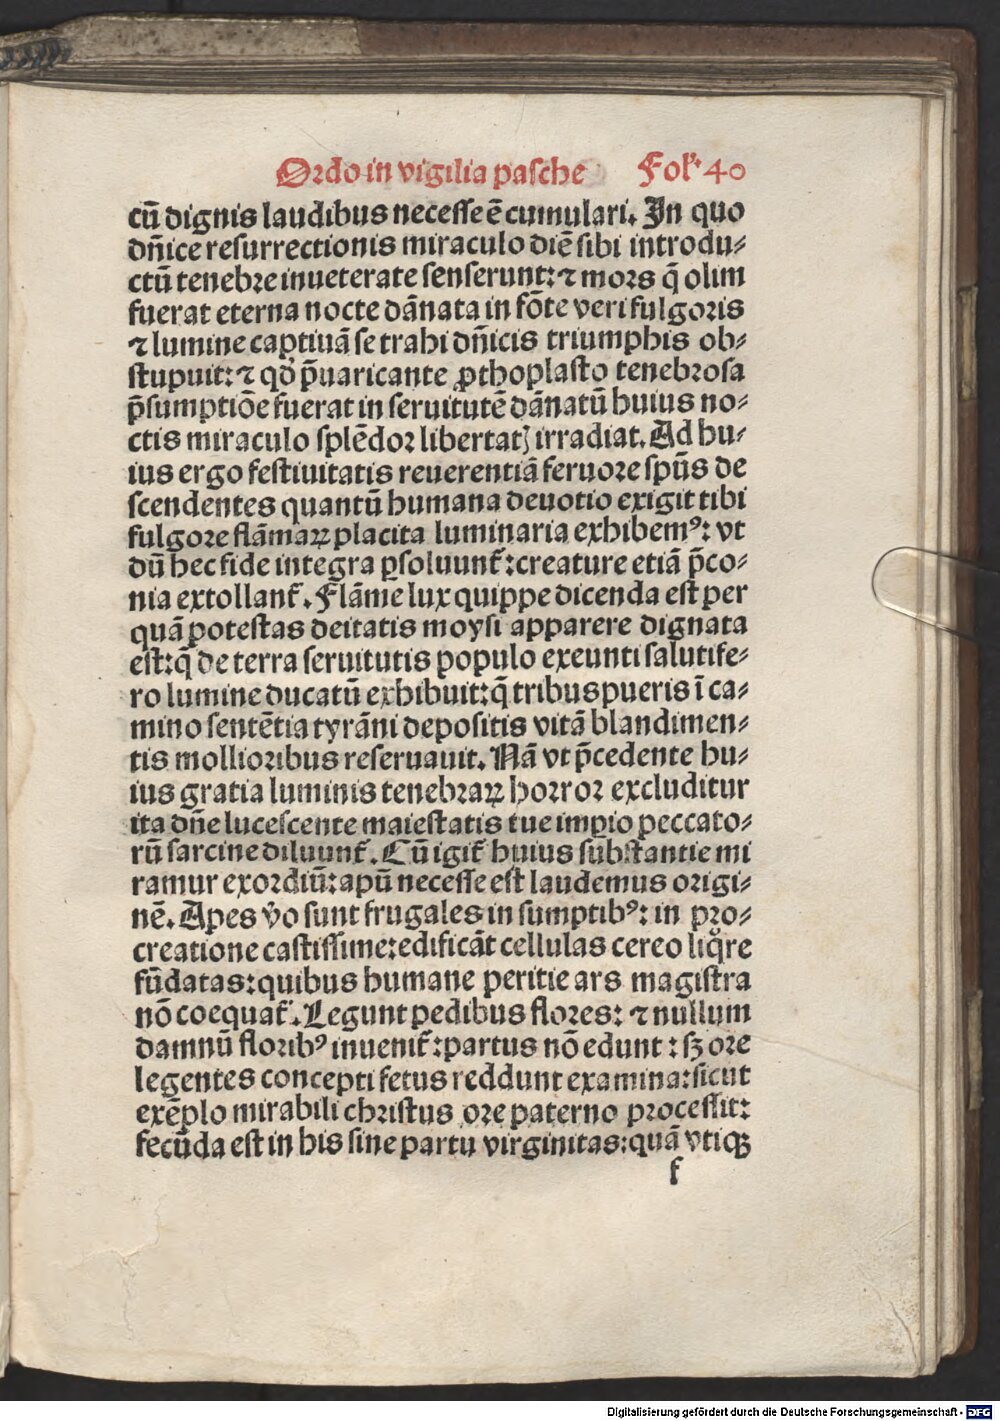 Ordo in vigilia pasche Folꝰ 40
cū dignis laudibus necesse ē cumulari. In quo
dn̄ice resurrectionis miraculo diē sibi introdu⸗
ctū tenebre inueterate senserunt: ⁊ mors q̄ olim
fuerat eterna nocte dānata in fōte veri fulgoris
⁊ lumine captiuā se trahi dn̄icis triumphis ob⸗
stupuit: ⁊ qd̓ p̄uaricante ꝓthoplasto tenebrosa
p̄sumptiōe fuerat in seruitutē dānatū huius no⸗
ctis miraculo splēdor libertatꝭ irradiat. Ad hu⸗
ius ergo festiuitatis reuerentiā feruore spūs de
scendentes quantū humana deuotio exigit tibi
fulgore flāmaꝝ placita luminaria exhibemꝰ: vt
dū hec fide integra ꝑsoluunt̄: creature etiā p̄co⸗
nia extollant̄. Flāme lux quippe dicenda est per
quā potestas deitatis moysi apparere dignata
est: q̄ de terra seruitutis populo exeunti salutife⸗
ro lumine ducatū exhibuit: q̄ tribus pueris ī ca⸗
mino sentētia tyrāni depositis vitā blandimen⸗
tis mollioribus reseruauit. Nā vt p̄cedente hu⸗
ius gratia luminis tenebraꝝ horror excluditur
ita dn̄e lucescente maiestatis tue impio peccato⸗
rū sarcine diluunt̄. Cū igit̄ huius sūbstantie mi
ramur exordiū: apū necesse est laudemus origi⸗
nē. Apes v̓o sunt frugales in sumptibꝰ: in pro⸗
creatione castissime: edificāt cellulas cereo liq̊re
fūdatas: quibus humane peritie ars magistra
nō coequat̄. Legunt pedibus flores: ⁊ nullum
damnū floribꝰ inuenit̄: partus nō edunt: sꝫ ore
legentes concepti fetus reddunt examina: sicut
exēplo mirabili christus ore paterno processit:
fecūda est in his sine partu virginitas: quā vtiqꝫ
f
Digitalisierung gefördert durch die Deutsche Forschungsgemeinschaft - DFG